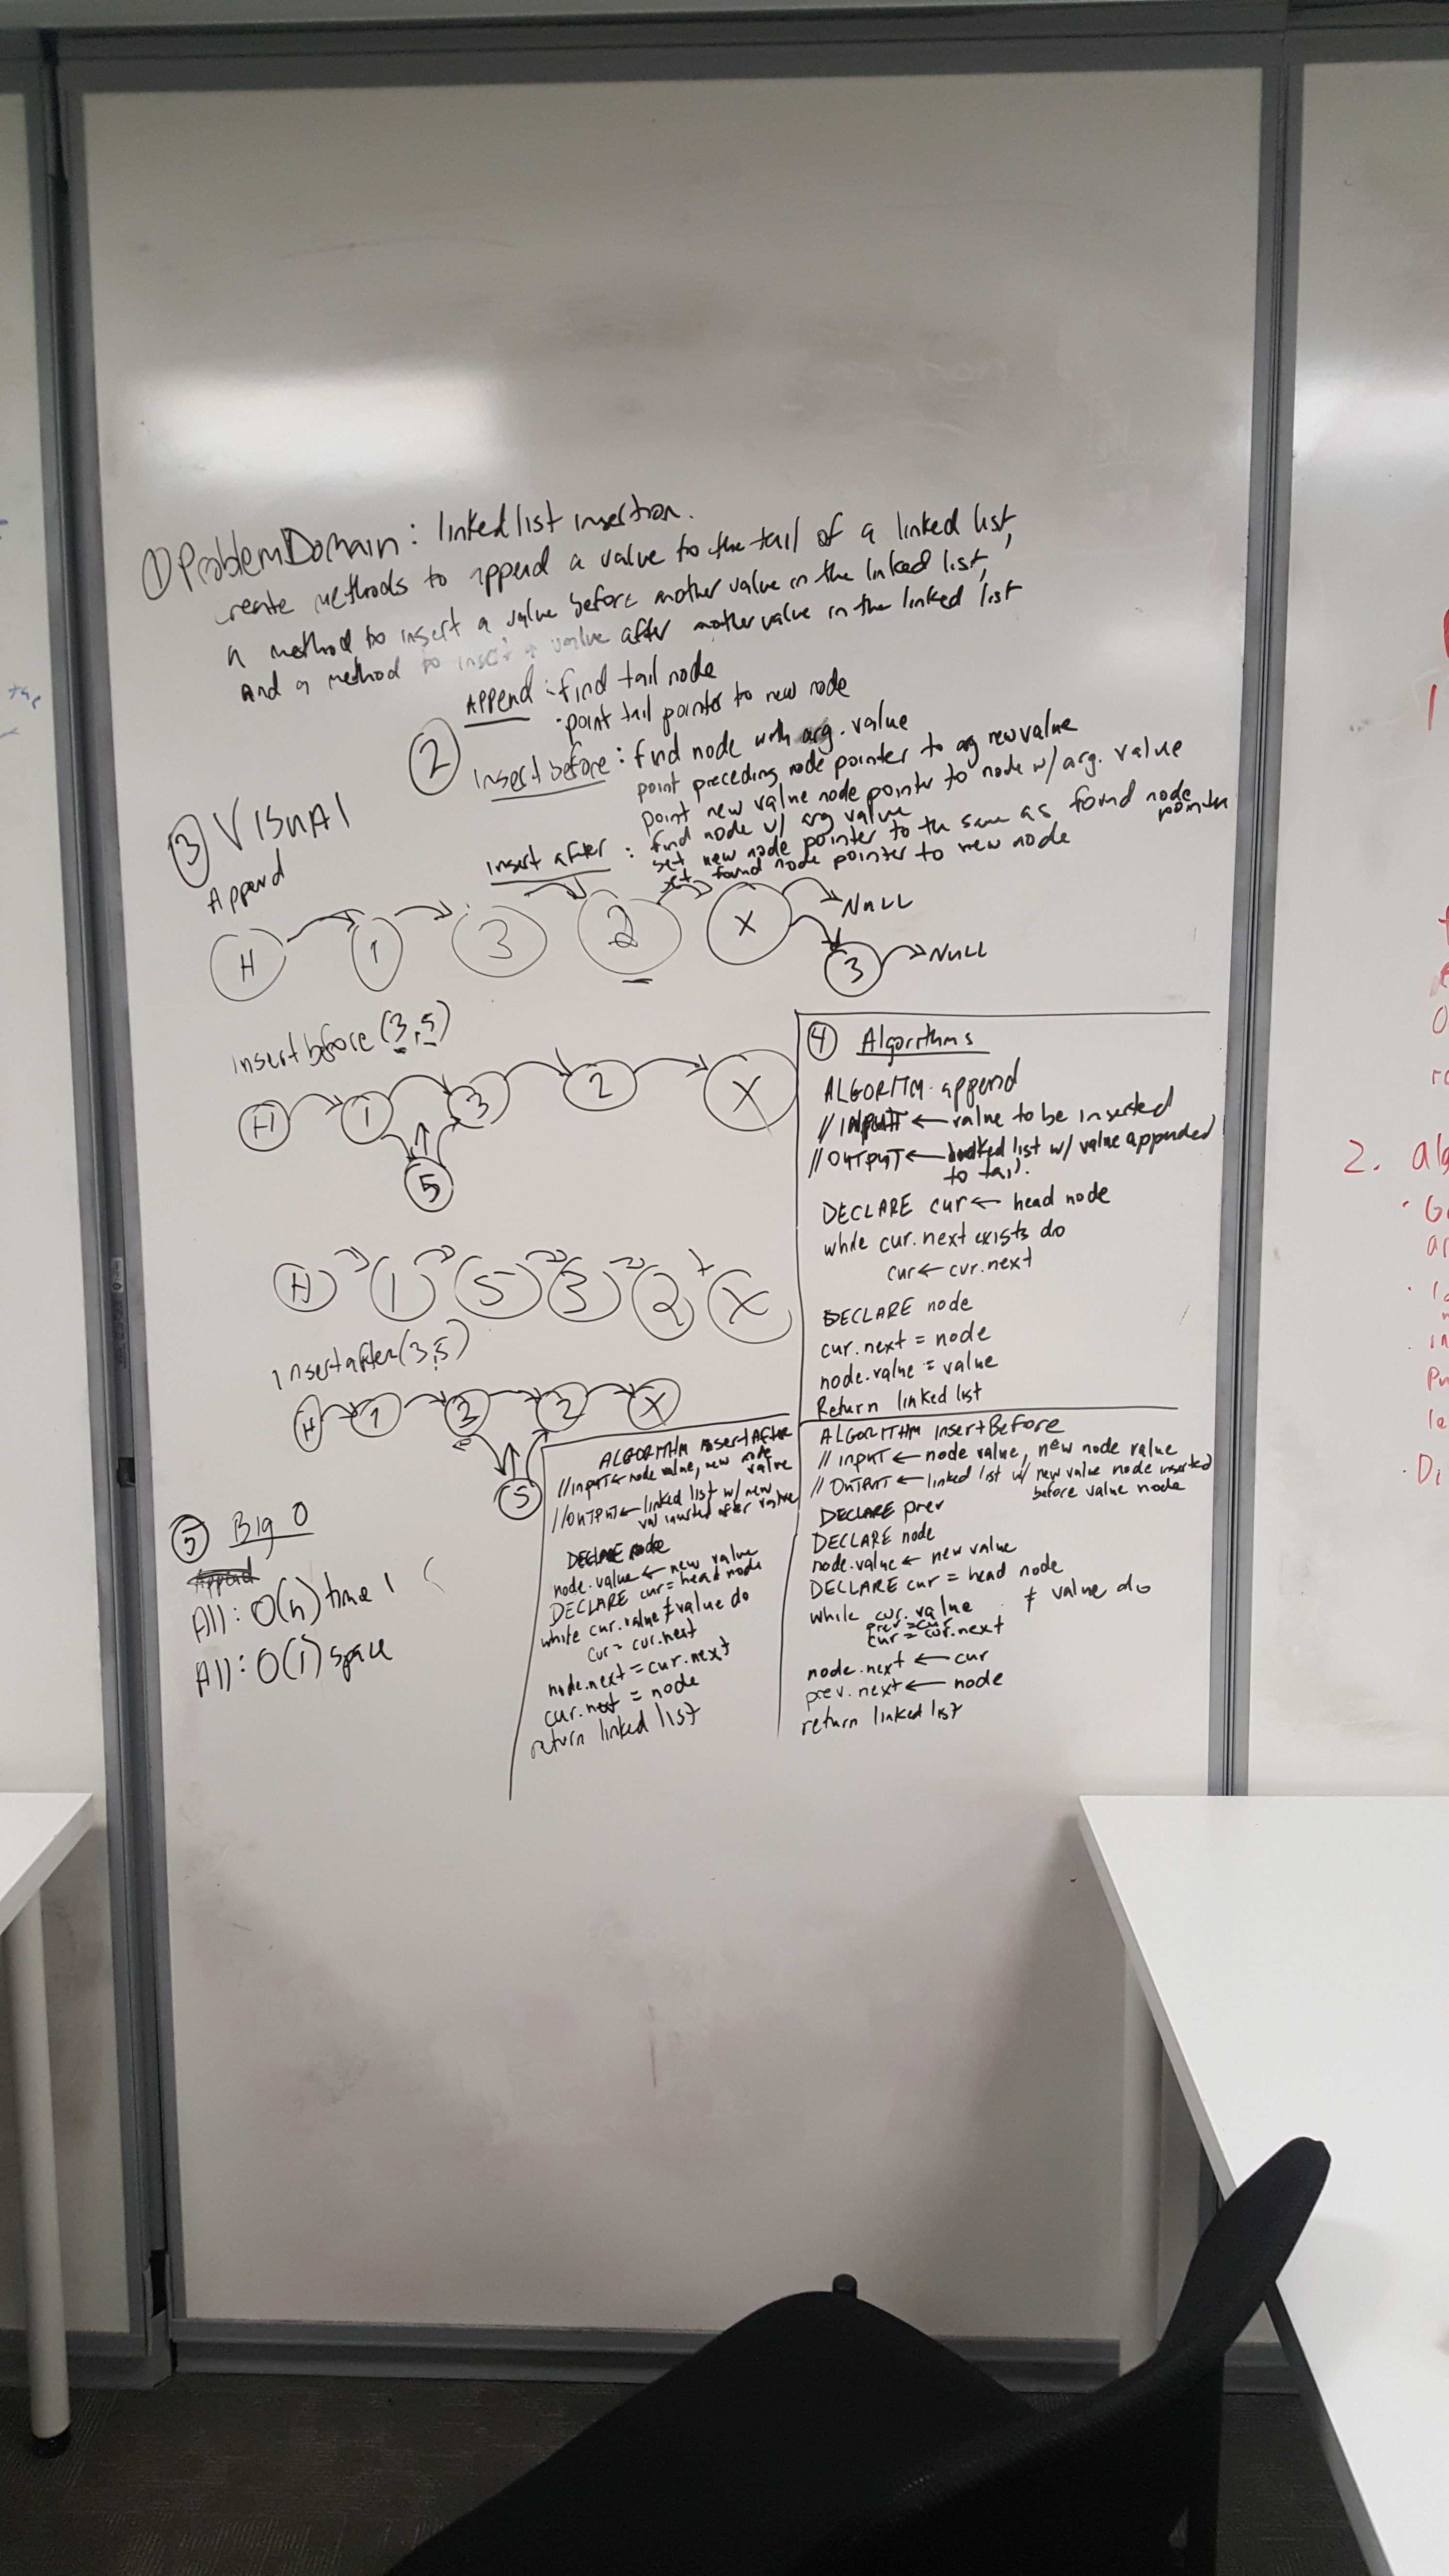 ① Problem Domain: linked list insertion.
create methods to append a value to the tail of a linked list,
a method to insert a value before another value in the linked list,
And a method to insert a value after another value in the linked list
② Append: · find tail node
· point tail pointer to new node
Insert before: find node with arg. value
point preceding node pointer to arg new value
point new value node pointer to node w/ arg. value
insert after: find node w/ arg value
set new node pointer to the same as found node pointer
set found node pointer to new node
③ VISUAl
Append
H 1 3 2 X NULL
3 NULL
insert before (3, 5)
H 1 3 2 X
5
H 1 5 3 2 X
insert after (3, 5)
H 1 3 2 X
5
④ Algorithms
ALGORITM append
// INPUT ← value to be inserted
// OUTPUT ← linked list w/ value appended
to tail.
DECLARE cur ← head node
while cur.next exists do
cur ← cur.next
DECLARE node
cur.next = node
node.value = value
Return linked list
ALGORITHM insertAfter
// input ← node value, new node
value
// OUTPUT ← linked list w/ new
val inserted after value
DECLARE node
node.value ← new value
DECLARE cur = head node
while cur.value ≠ value do
cur = cur.next
node.next = cur.next
cur.next = node
return linked list
ALGORITHM insertBefore
// input ← node value, new node value
// OUTPUT ← linked list w/ new value node inserted
before value node
DECLARE prev
DECLARE node
node.value ← new value
DECLARE cur = head node
while cur.value ≠ value do
prev = cur
cur = cur.next
node.next ← cur
prev.next ← node
return linked list
⑤ Big O
Append
All: O(n) time
All: O(1) space
the
2. alg